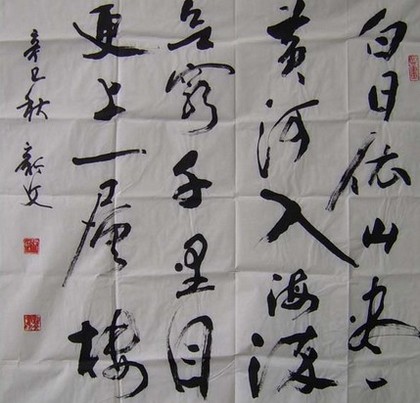 白日依山尽
黄河入海流
欲窮千里目
更上一層樓
辛巳秋